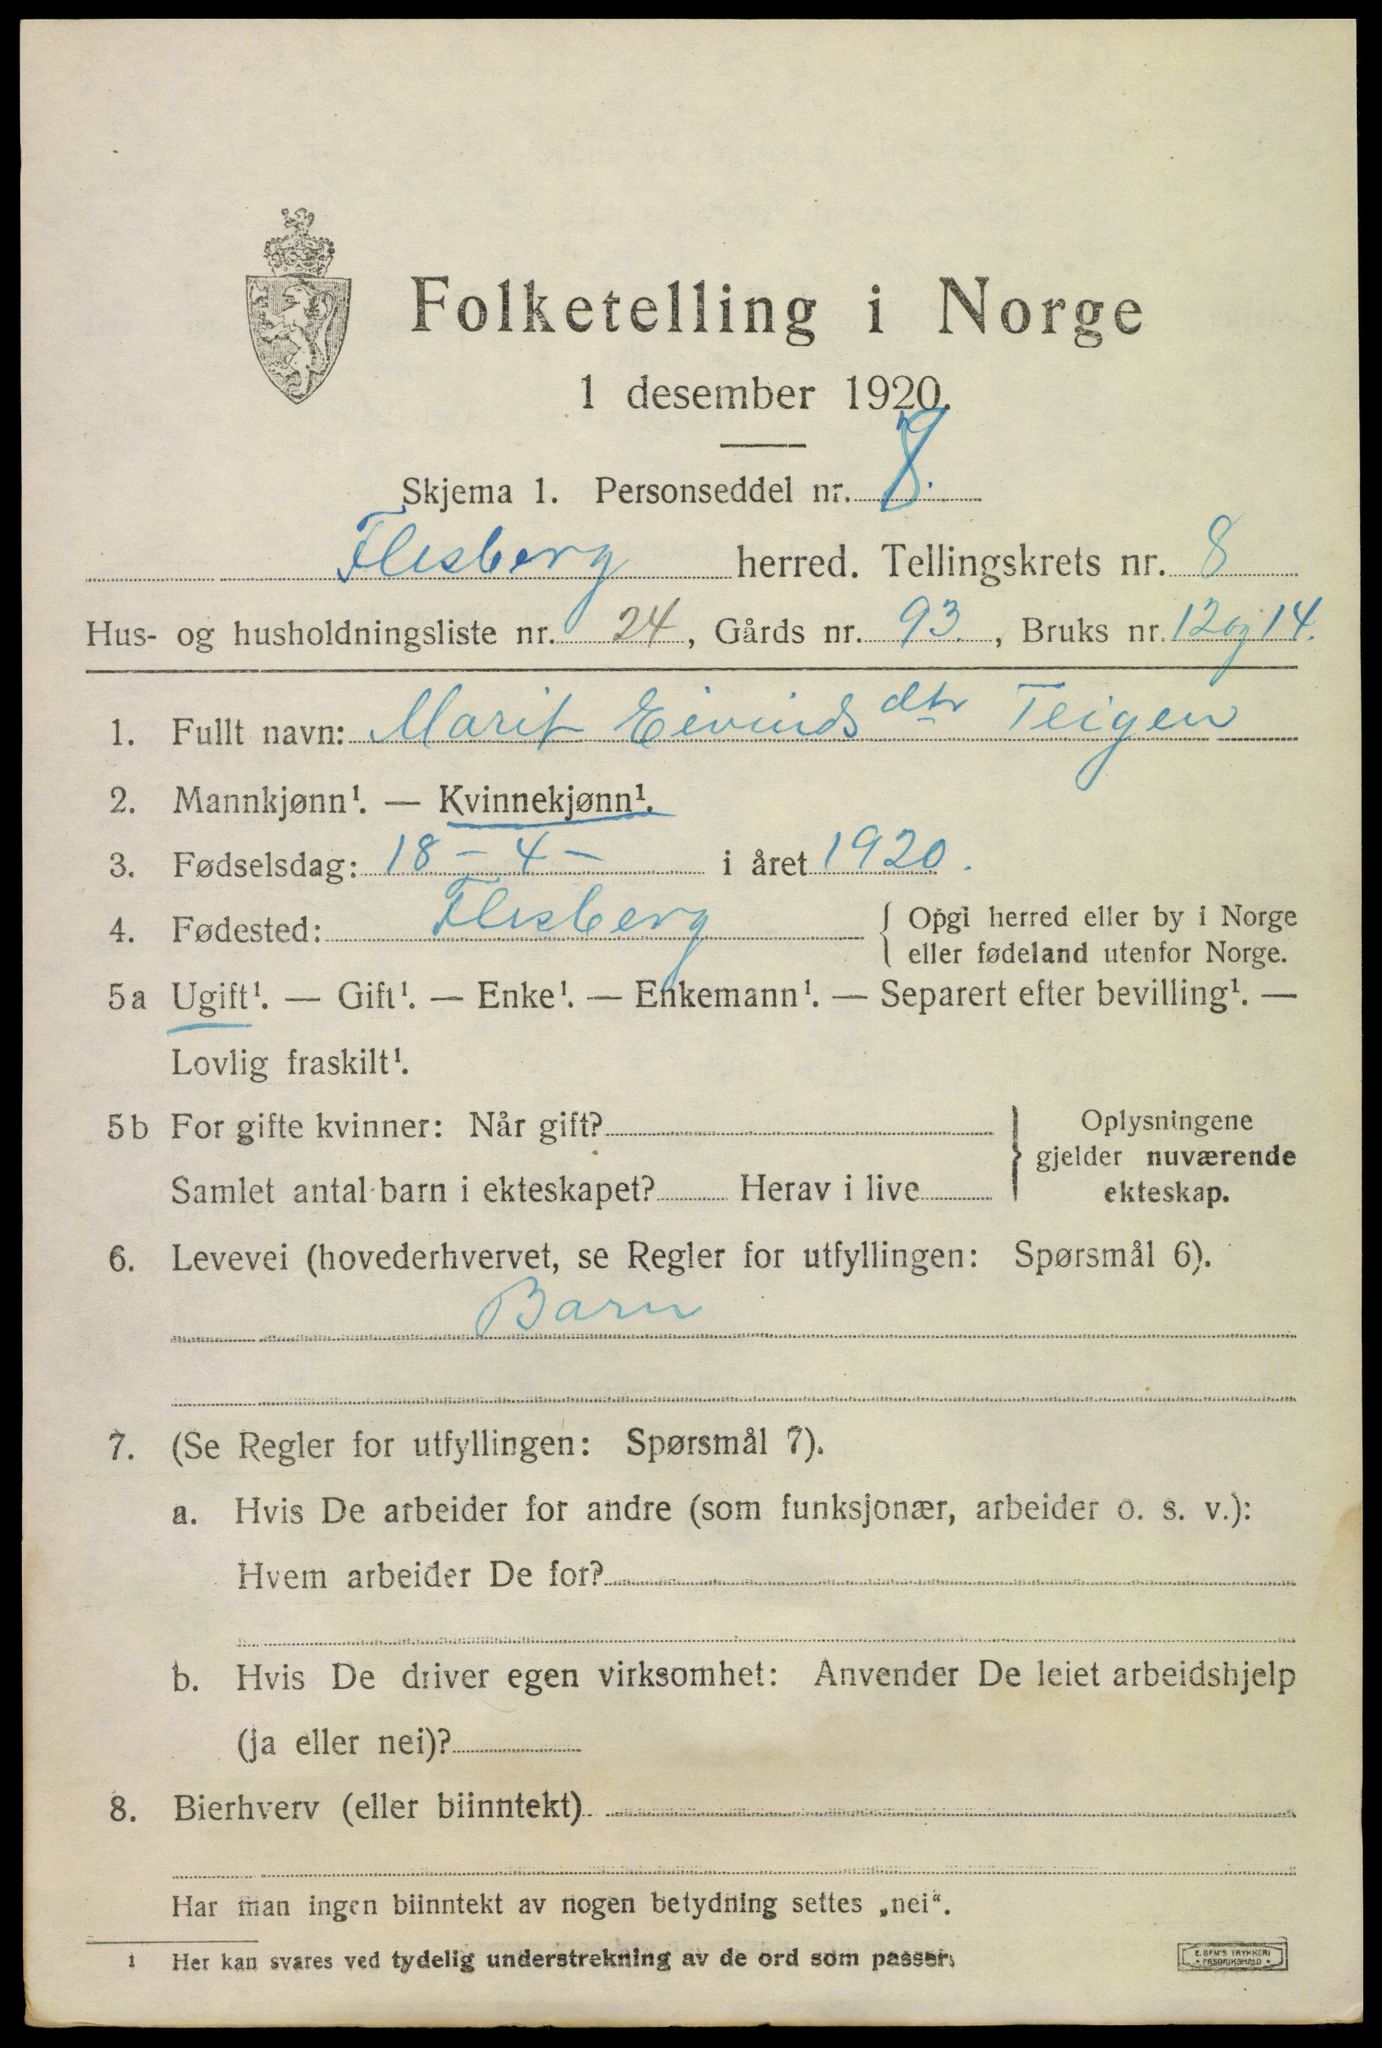 Folketelling i Norge
1 desember 1920.
Skjema 1. Personseddel nr. 8.
Flesberg herred. Tellingskrets nr. 8
Hus- og husholdningsliste nr. 24, Gårds nr. 93., Bruks nr. 12 og 14.
1. Fullt navn: Marit Eivindsdtr Teigen
2. Mannkjønn¹. — Kvinnekjønn¹.
3. Fødselsdag: 18 - 4 - i året 1920.
4. Fødested: Flesberg { Opgi herred eller by i Norge
eller fødeland utenfor Norge.
5a Ugift¹. — Gift¹. — Enke¹. — Enkemann¹. — Separert efter bevilling¹. —
Lovlig fraskilt¹.
5b For gifte kvinner: Når gift? } Oplysningene
gjelder nuværende
Samlet antal barn i ekteskapet? Herav i live ekteskap.
6. Levevei (hovederhvervet, se Regler for utfyllingen: Spørsmål 6).
Barn
7. (Se Regler for utfyllingen: Spørsmål 7).
a. Hvis De arbeider for andre (som funksjonær, arbeider o. s. v.):
Hvem arbeider De for?
b. Hvis De driver egen virksomhet: Anvender De leiet arbeidshjelp
(ja eller nei)?
8. Bierhverv (eller biinntekt)
Har man ingen biinntekt av nogen betydning settes „nei“.
1 Her kan svares ved tydelig understrekning av de ord som passer.
E. SEM'S TRYKKERI
• FREDRIKSHALD •